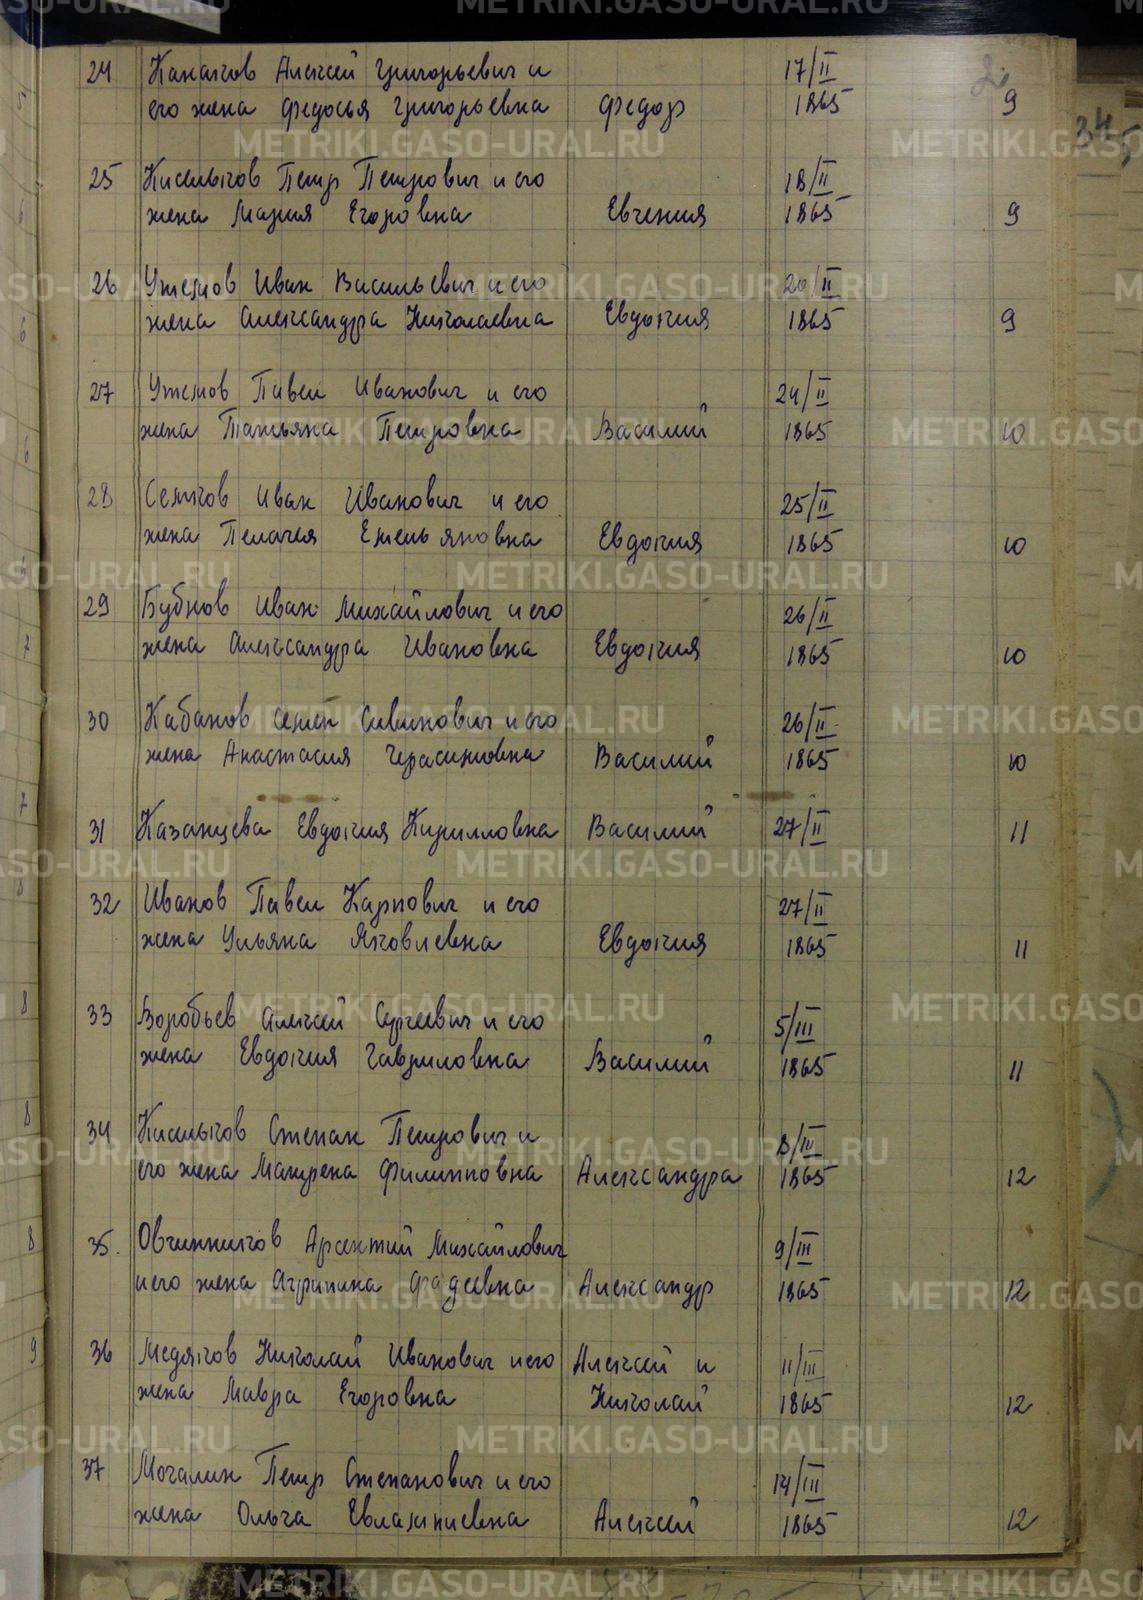 24 Канаков Алексей Григорьевич и 17/II
его жена Федосья Григорьевна Федор 1865 9
25 Кисляков Петр Петрович и его 18/II
жена Мария Егоровна Евгения 1865 9
26 Ужегов Иван Васильевич и его 20/II
жена Александра Николаевна Евдокия 1865 9
27 Ужегов Павел Иванович и его 24/II
жена Татьяна Петровна Василий 1865 10
28 Иван Иванович и его 25/II
жена Пелагея Емельяновна Евдокия 1865 10
29 Бубнов Иван Михайлович и его 26/II
жена Александра Ивановна Евдокия 1865 10
30 Кабанов Семен Саввинович и его 26/II
жена Анастасия Герасимовна Василий 1865 10
31 Казанцева Евдокия Кирилловна Василий 27/II 11
32 Иванов Павел Карпович и его 27/II
жена Ульяна Яковлевна Евдокия 1865 11
33 Воробьев Алексей Сергеевич и его 5/III
жена Евдокия Гавриловна Василий 1865 11
34 Степан Петрович и 8/III
его жена Матрена Филипповна Александра 1865 12
35. Овчинников Арсентий Михайлович 9/III
и его жена Агрипина Фадеевна Александр 1865 12
36 Медяков Николай Иванович и его Алексей и 11/III
жена Мавра Егоровна Николай 1865 12
37 Мочалин Петр Степанович и его 14/III
жена Ольга Евлампиевна Алексей 1865 12
METRIKI.GASO-URAL.RU